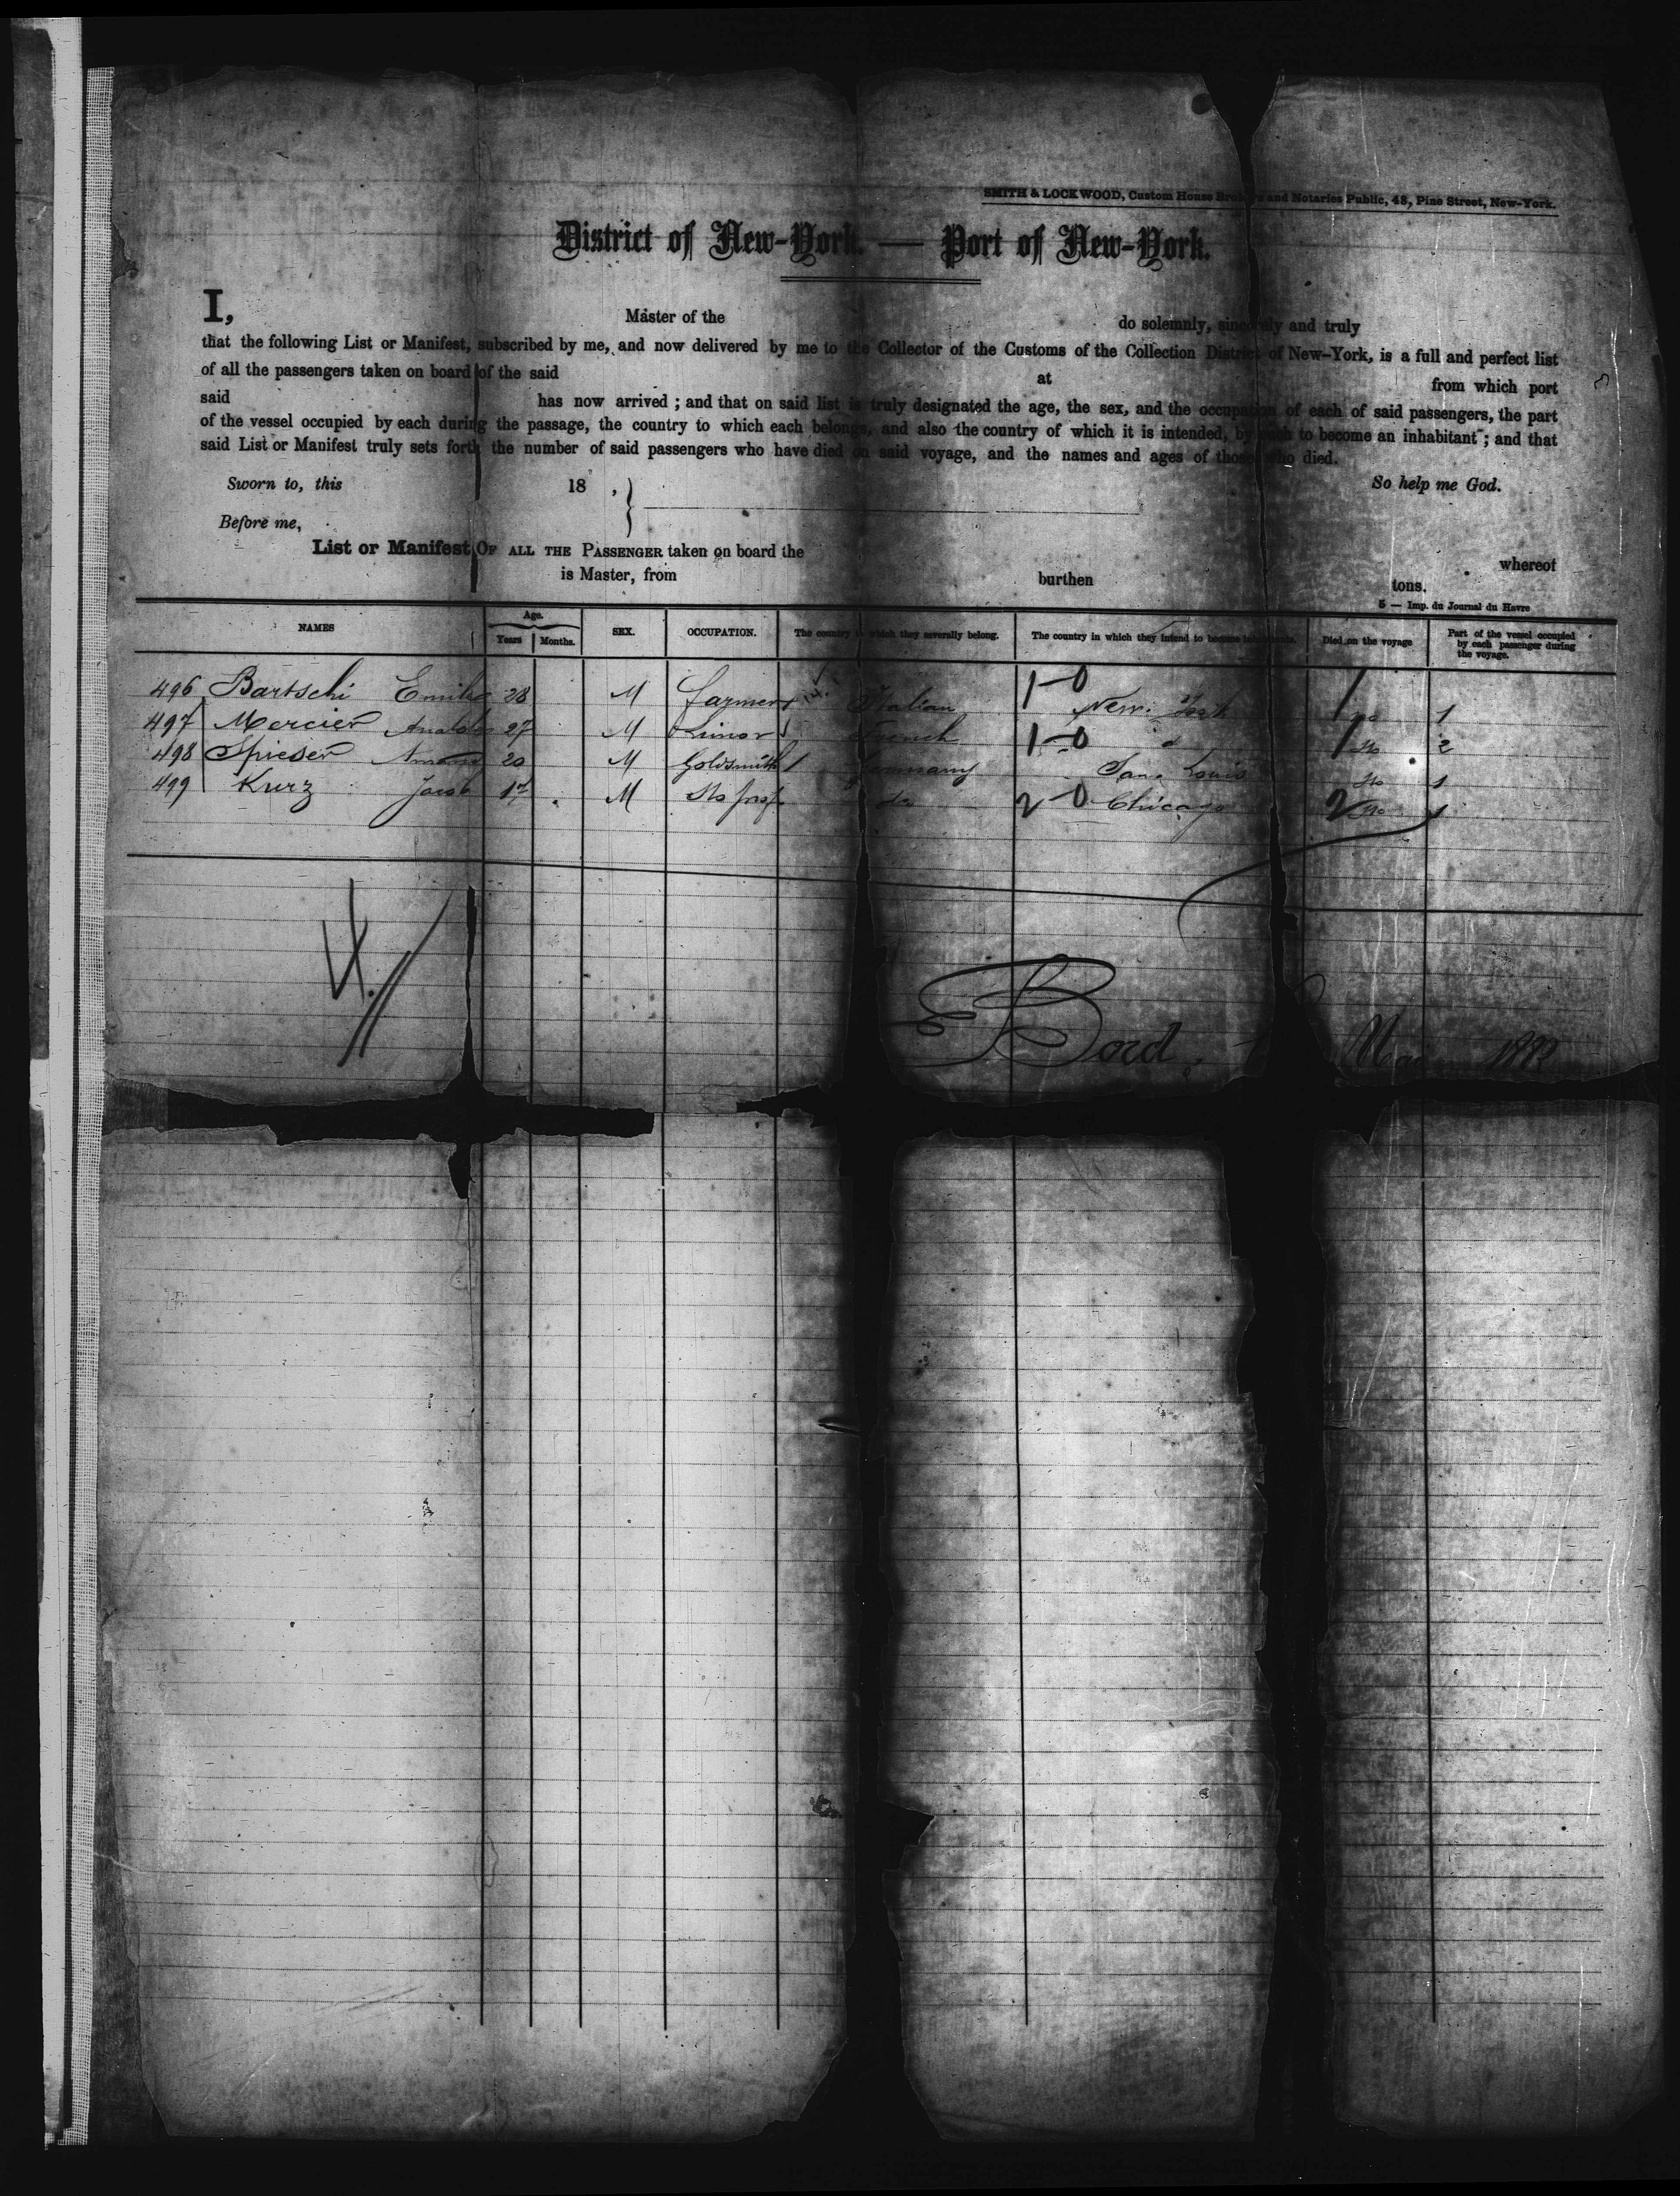 SMITH & LOCKWOOD, Custom House Brokers and Notaries Public, 48, Pine Street, New-York.
District of New-York. — Port of New-York.
I, Master of the do solemnly, sincerely and truly
that the following List or Manifest, subscribed by me, and now delivered by me to the Collector of the Customs of the Collection District of New-York, is a full and perfect list
of all the passengers taken on board of the said at from which port
said has now arrived ; and that on said list is truly designated the age, the sex, and the occupation of each of said passengers, the part
of the vessel occupied by each during the passage, the country to which each belongs, and also the country of which it is intended, by each to become an inhabitant ; and that
said List or Manifest truly sets forth the number of said passengers who have died on said voyage, and the names and ages of those who died.
Sworn to, this 18 , So help me God.
Before me,
List or Manifest OF ALL THE PASSENGER taken on board the whereof
is Master, from burthen tons.
5 — Imp. du Journal du Havre
NAMES Age. Years Months. SEX. OCCUPATION. The country to which they severally belong. The country in which they intend to become inhabitants. Died on the voyage Part of the vessel occupied by each passenger during the voyage.
496 Bartschi Emile 28 M farmer Italian 1-0 New York 1 no 1
497 Mercier 27 M French 1-0 d 1 No 2
498 Spieser 20 M Goldsmith 1 Germany San Louis No 1
499 Kurz Jacob 17 M No prof do 2-0 Chicago 2 No 1
4.//
Bord, Mai